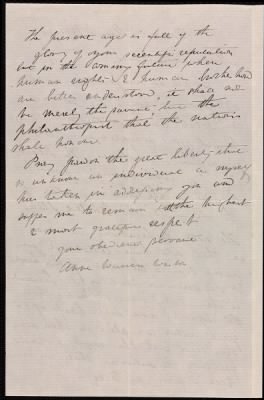 The present age is full of the
glory of your scientific reputation
but in the coming future when
human rights & human brotherhood
are better understood, it shall not
be merely the savant, but the
philanthropist that the nations
shall honor.
Pray pardon the great liberty that
so unknown an individual as myself
has taken in addressing you and
suffer me to remain with the highest
& most grateful respect
your obedient servant
Anne Warren Weston